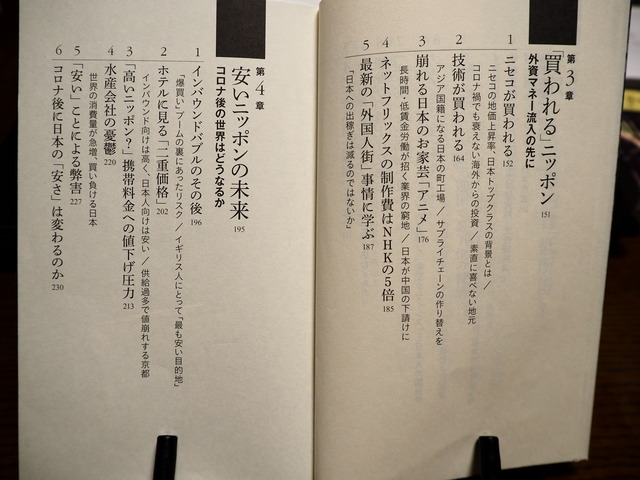 第3章
「買われる」ニッポン 151
外資マネー流入の先に
1 ニセコが買われる 152
ニセコの地価上昇率、日本トップクラスの背景とは／
コロナ禍でも衰えない海外からの投資／素直に喜べない地元
2 技術が買われる 164
アジア国籍になる日本の町工場／サプライチェーンの作り替えを
3 崩れる日本のお家芸「アニメ」 176
長時間・低賃金労働が招く業界の窮地／日本が中国の下請けに
4 ネットフリックスの制作費はNHKの5倍 185
5 最新の「外国人街」事情に学ぶ 187
「日本への出稼ぎは減るのではないか」
第4章
安いニッポンの未来 195
コロナ後の世界はどうなるか
1 インバウンドバブルのその後 196
「爆買い」ブームの裏にあったリスク／イギリス人にとって「最も安い目的地」
2 ホテルに見る「二重価格」 202
インバウンド向けは高く、日本人向けは安い／供給過多で値崩れする京都
3 「高いニッポン？」携帯料金への値下げ圧力 213
4 水産会社の憂鬱 220
世界の消費量が急増、買い負ける日本
5 「安い」ことによる弊害 227
6 コロナ後に日本の「安さ」は変わるのか 230